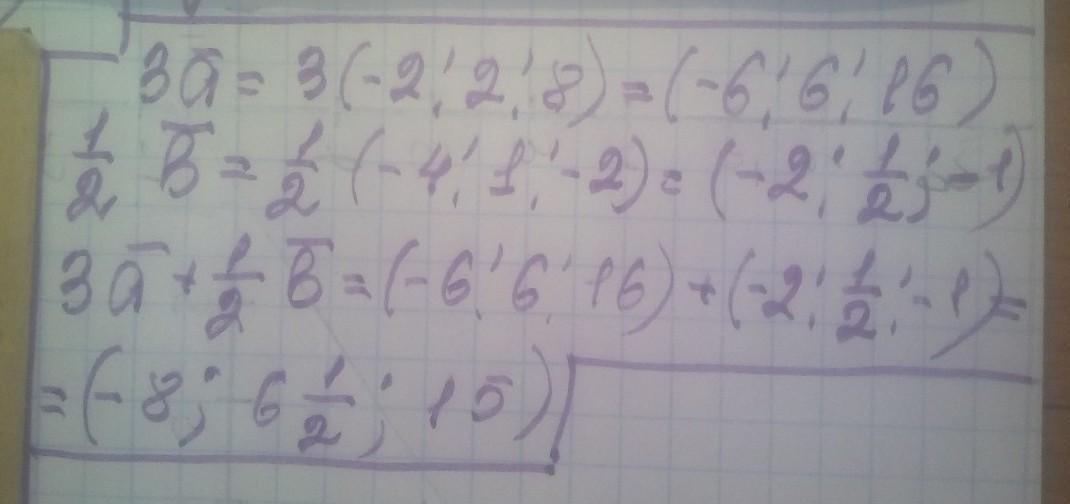 3a̅ = 3(-2; 2; 8) = (-6; 6; 16)
1/2 b̅ = 1/2 (-4; 1; -2) = (-2; 1/2; -1)
3a̅ + 1/2 b̅ = (-6; 6; 16) + (-2; 1/2; -1) =
= (-8; 6 1/2; 15)